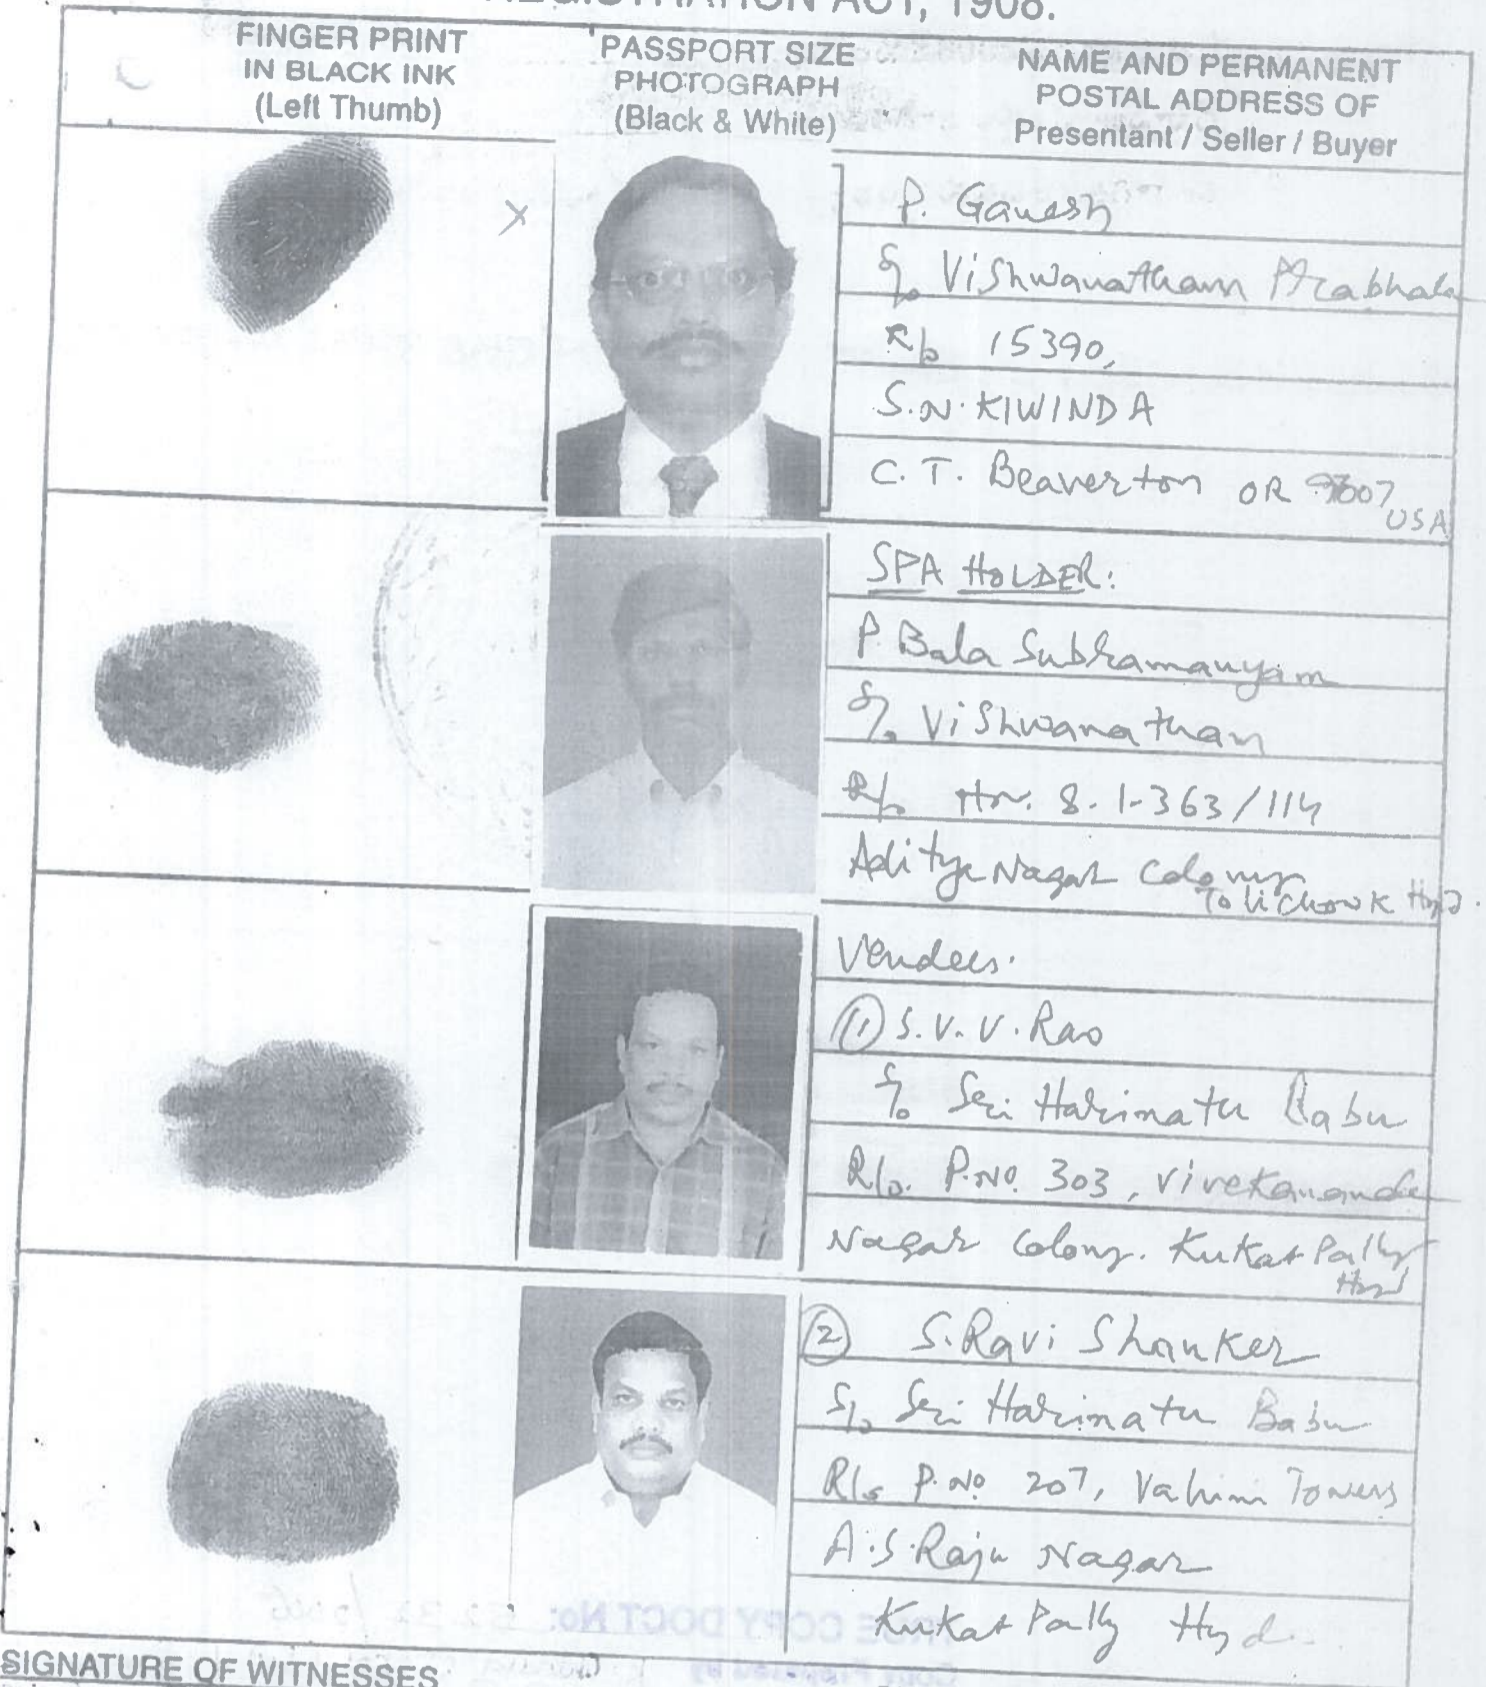 REGISTRATION ACT, 1908.
FINGER PRINT
IN BLACK INK
(Left Thumb)
PASSPORT SIZE
PHOTOGRAPH
(Black & White)
NAME AND PERMANENT
POSTAL ADDRESS OF
Presentant / Seller / Buyer
X
P. Ganesh
S/o Vishwanatham Prabhala
R/o 15390,
S.W. KIWINDA
C.T. Beaverton OR 97007
USA
SPA HOLDER:
P. Bala Subramanyam
S/o Vishwanatham
R/o Hn. 8-1-363/114
Aditya Nagar Colony
Tolichowk Hyd.
Vendees.
(1) S.V.V. Rao
S/o Sri Harimatu Babu
R/o. P.No. 303, Vivekananda
Nagar Colony. Kukatpally
Hyd
(2) S. Ravi Shanker
S/o Sri Harimatu Babu
R/o P.No 207, Vahini Towers
A.S. Raju Nagar
Kukatpally Hyd.
TRUE COPY DOCT No:
SIGNATURE OF WITNESSES